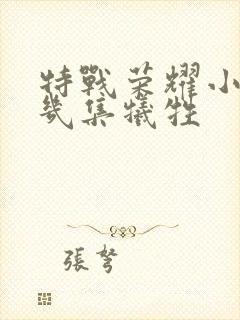 特戰荣耀小
幾集犧牲
張弩